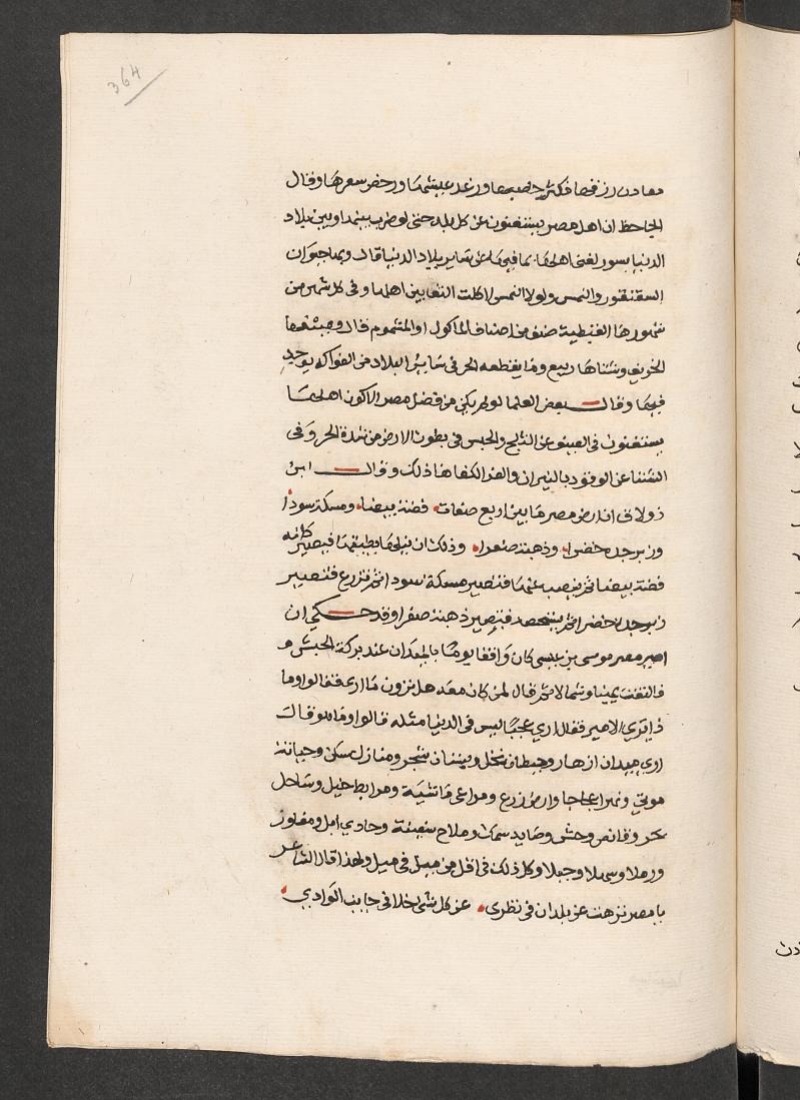 364
معادن رزقها فكثر خصبها ورغد عيشها ورخص سعرها وقال
الجاحظ ان اهل مصر يستغنون عن كل بلد حتى لو ضرب بينها وبين بلاد
الدنيا بسور لغني اهلها بما فيها عن ساير بلاد الدنيا قال وبها حيوان
السقنقور والنمس ولولا النمس لاكلت الثعابين اهلها وفي كل شهر من
شهورها القبطية صنف من اصناف الماكول او المشموم قال وصيفها
الخريف وشتاها ربيع وما يقطعه الحر في ساير البلاد من الفواكه يوجد
فيها وقال بعض العلما لو لم يكن من فضل مصر الا كون اهلها
يستغنون في الصيف عن الثلج والجبس في بطون الارض من شدة الحر وفي
الشتا عن الوقود بالنيران والفرا لكفاها ذلك وقال ابن
زولاق ان ارض مصر ما بين اربع صفات فضة بيضا ومسكة سودا
وزبرجدة خضرا وذهبة صفرا وذلك ان نيلها يطبقها فيصير كانه
فضة بيضا ثم ينضب عنها فتصير مسكة سودا ثم تزرع فتصير
زبرجدة خضرا ثم يستحصد فتصير ذهبة صفرا وقد حكي ان
امير مصر موسى بن عيسى كان واقفا يوما بالميدان عند بركة الحبش
فالتفت يمينا وشمالا ثم قال لمن كان معه هل ترون ما ارى فقالوا وما
ذا يرى الامير فقال ارى عجبا ليس في الدنيا مثله قالوا وما هو قال
ارى ميدان ازهار وحيطان نخل وبستان شجر ومنازل سكن وجبانة
موتي ونهرا عجاجا وارض زرع ومراعي ماشية ومرابط خيل وساحل
بحر وقانص وحش وصايد سمك وملاح سفينة وحادي ابل ومفاوز
ورملا وسهلا وجبلا وكل ذلك في اقل من ميل في ميل ولهذا قال الشاعر
يا مصر نزهت عن بلدان في نظري عن كل شي خلا في جانب الوادي